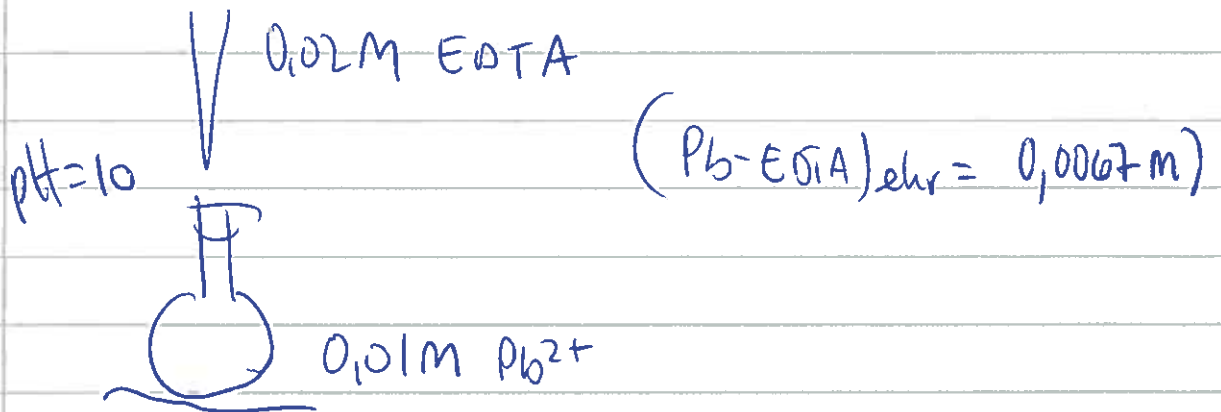 0,02M EDTA
pH=10
(Pb-EDTA)ekv = 0,0067 M)
0,01M Pb2+